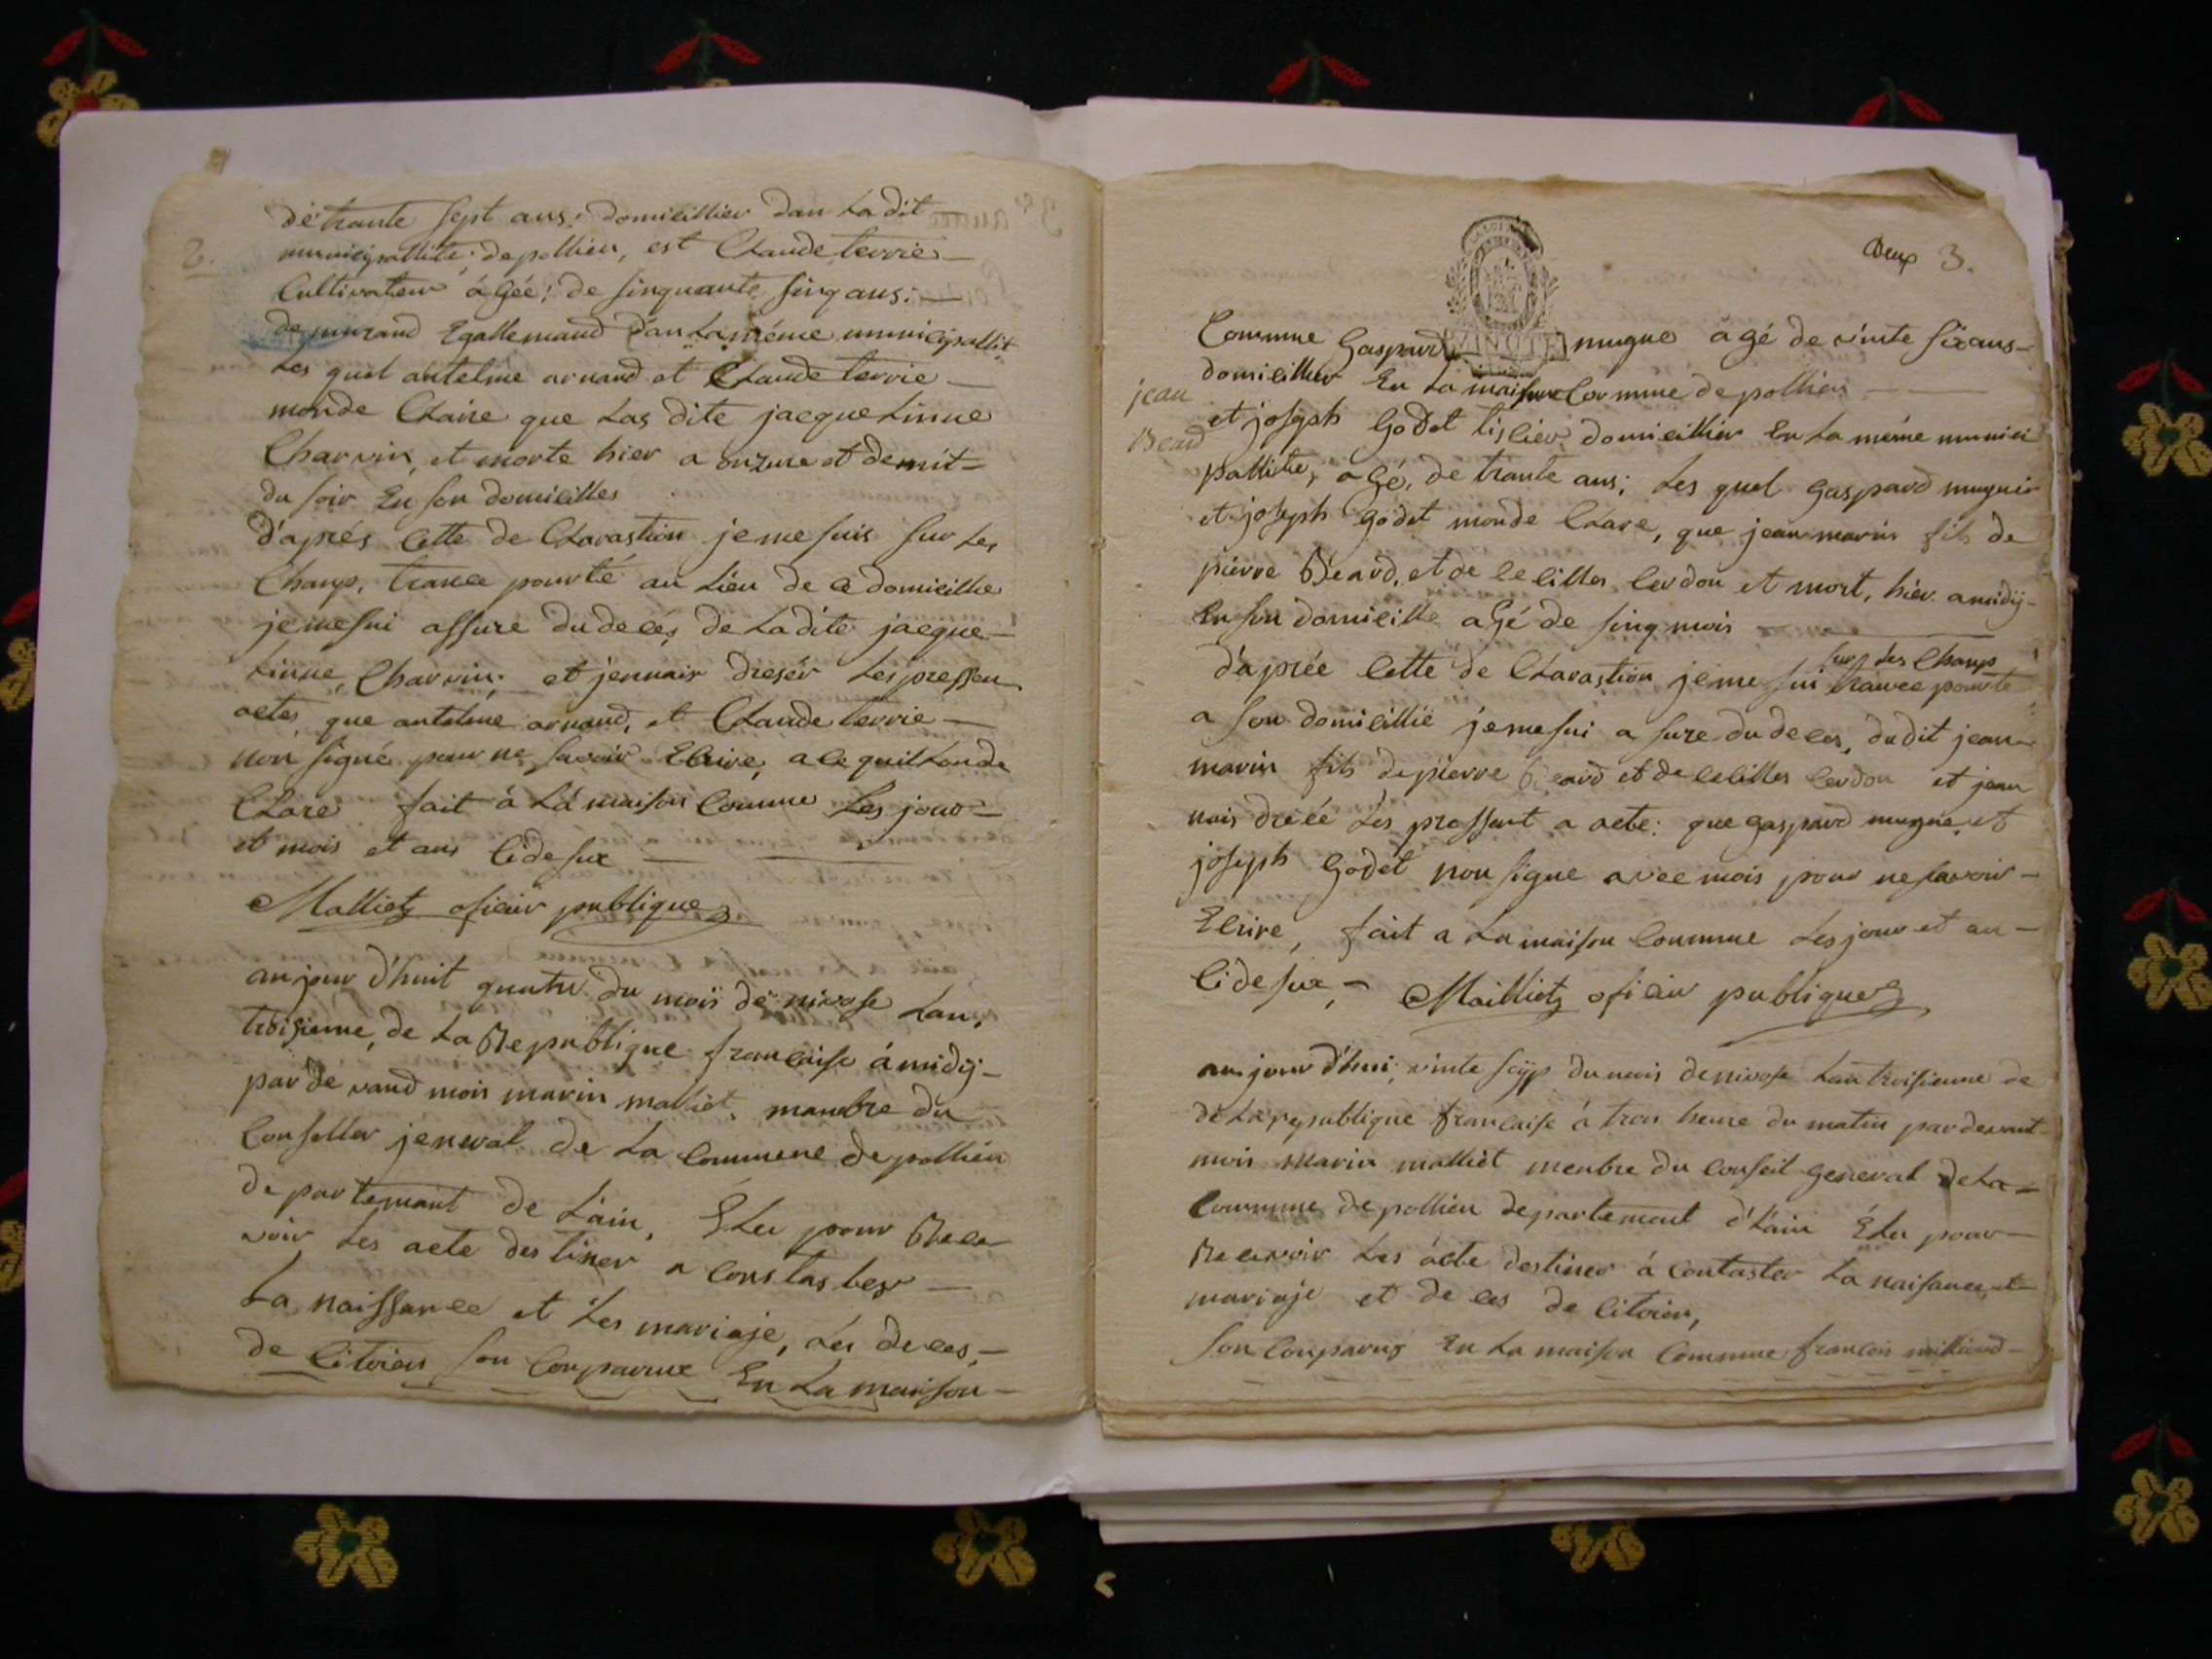 2.
de trante sept ans; domicillier dan la dit
municipallite, de pollieu, est Claude terrie
Cultivateur a gée; de sinquante sinq ans;
demurand Egallemand dan la méme municipallit
les quel antelme arnand et Claude terrie
monde Claire que las dite jacque linne
Charvin, et morte hier a onzure et demit
du soir En son domicilles
d'aprés cette de Claration je me suis sur les
Champ, trance pourté au lieu de ce domicilles
je me sui assure du deces de la dite jacque
linne, Charvin; et jennair dresér les pressen
actes que antelme arnand, et Claude terrie
non signé pour ne savoir Ecrire, a ce quil londe
Clare fait á la maison Comune les jour
et mois et ans Cidesux
Malliet oficier publique
aujour d'huit quatre du mois de nivose lan,
troisienne, de la Republique francaise á midij
par de vand mois marin malliet, manbre du
Conseller jeneral de la Commene de pollieu
departemant de l'ain, Elu pour Rece
voir les acte destiner a Constaster
la naissance et les mariaje, les deces,
de Citoien son Comparue En la maison
Deux 3.
Commune Gaspard mugne agé de vinte six ans
domicillier En la maison Commune de pollieu
jean
Beard
et joseph Godet tislier domicillier En la méme munici
pallite, a gé, de trante ans; les quel Gaspard mugnie
et joseph Godet monde Clare, que jean marin fils de
piérre Béard, et de cecilles Cerdon et mort, hiér a midij
En son domicille a Gé de sinq mois
sur les Champ
d'aprée cette de Claration je me sui trance pourté
a son domicillie je me sui a sure du deces, du dit jean
marin fils de pierre Béard et de cecilles Cerdon et jean
nais dréé les pressent a acte: que gaspard mugne, et
joseph Godet non signe avec mois pour ne savoir
Ecrire, fait a la maison Commune les jour et an
Cidesux, Mailliet oficier publique
aujour d'hui, vinte du mois de nivose lan troisienne de
de la republique francaise á trois heure du matin par devant
mois marin malliet menbre du Conseil general de la
Commune de pollieu departement d'l'ain Élu pour
Recevoir les acte destiner á Contaster la naisance, et
mariaje et de ces de Citoien,
son Comparus En la maison Commune francois milliand